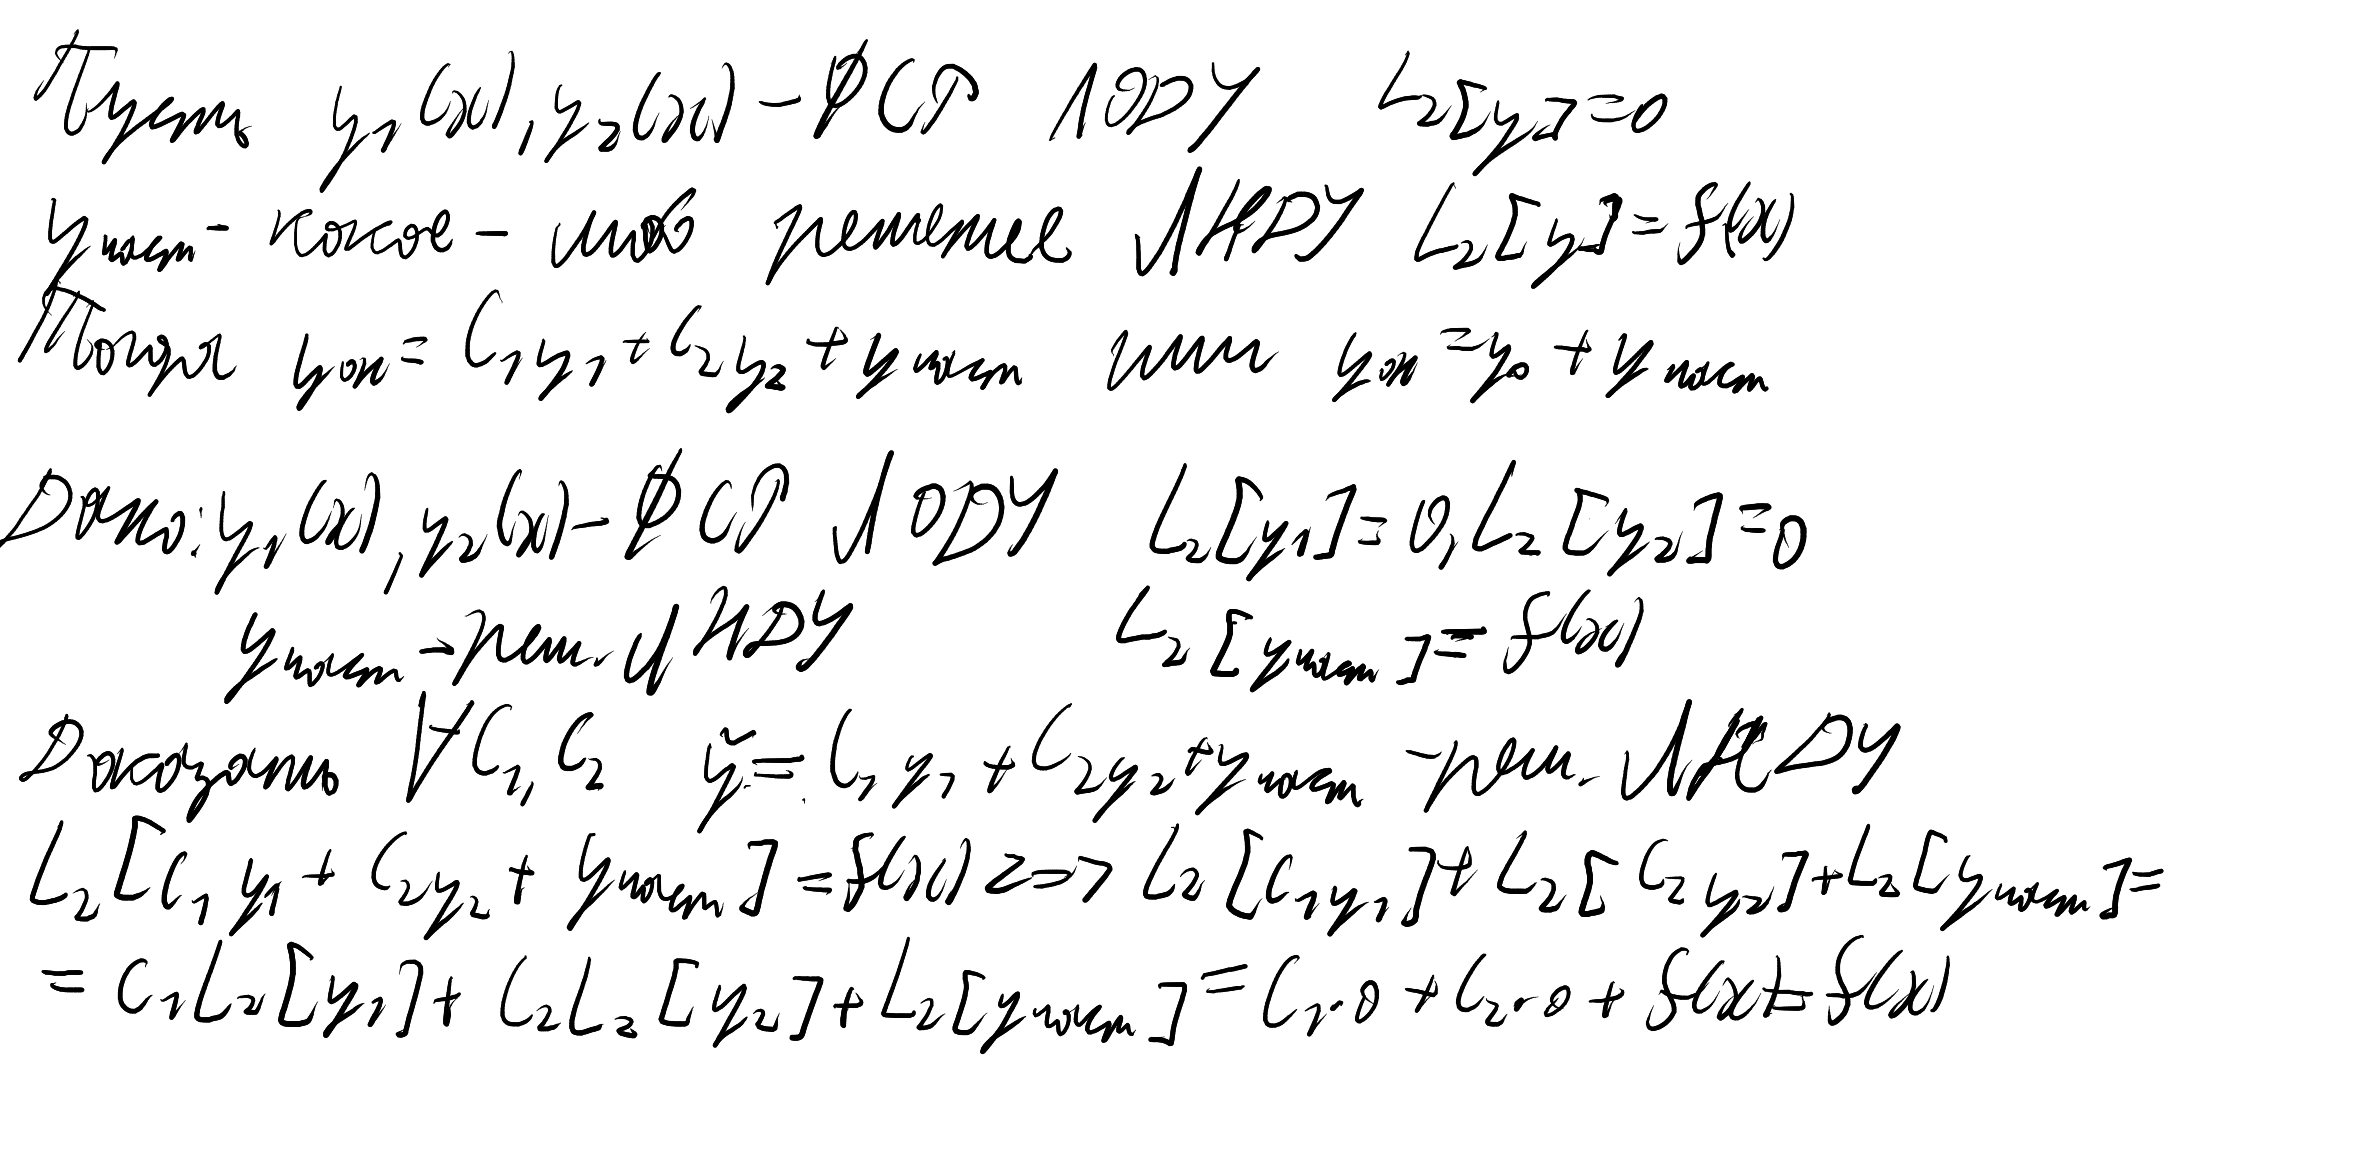 Пусть y₁(x), y₂(x) - ФСР ЛОДУ L₂[y]=0
yчаст - какое-либо решение ЛНДУ L₂[y]=f(x)
Тогда yон = C₁y₁ + C₂y₂ + yчаст или yон = y₀ + yчаст
Дано: y₁(x), y₂(x) - ФСР ЛОДУ L₂[y₁]=0, L₂[y₂]=0
yчаст - реш. ЛНДУ L₂[yчаст]=f(x)
Доказать ∀C₁, C₂ ỹ = C₁y₁ + C₂y₂ + yчаст - реш. ЛНДУ
L₂[C₁y₁ + C₂y₂ + yчаст] = f(x) <=> L₂[C₁y₁] + L₂[C₂y₂] + L₂[yчаст] =
= C₁L₂[y₁] + C₂L₂[y₂] + L₂[yчаст] = C₁·0 + C₂·0 + f(x) = f(x)